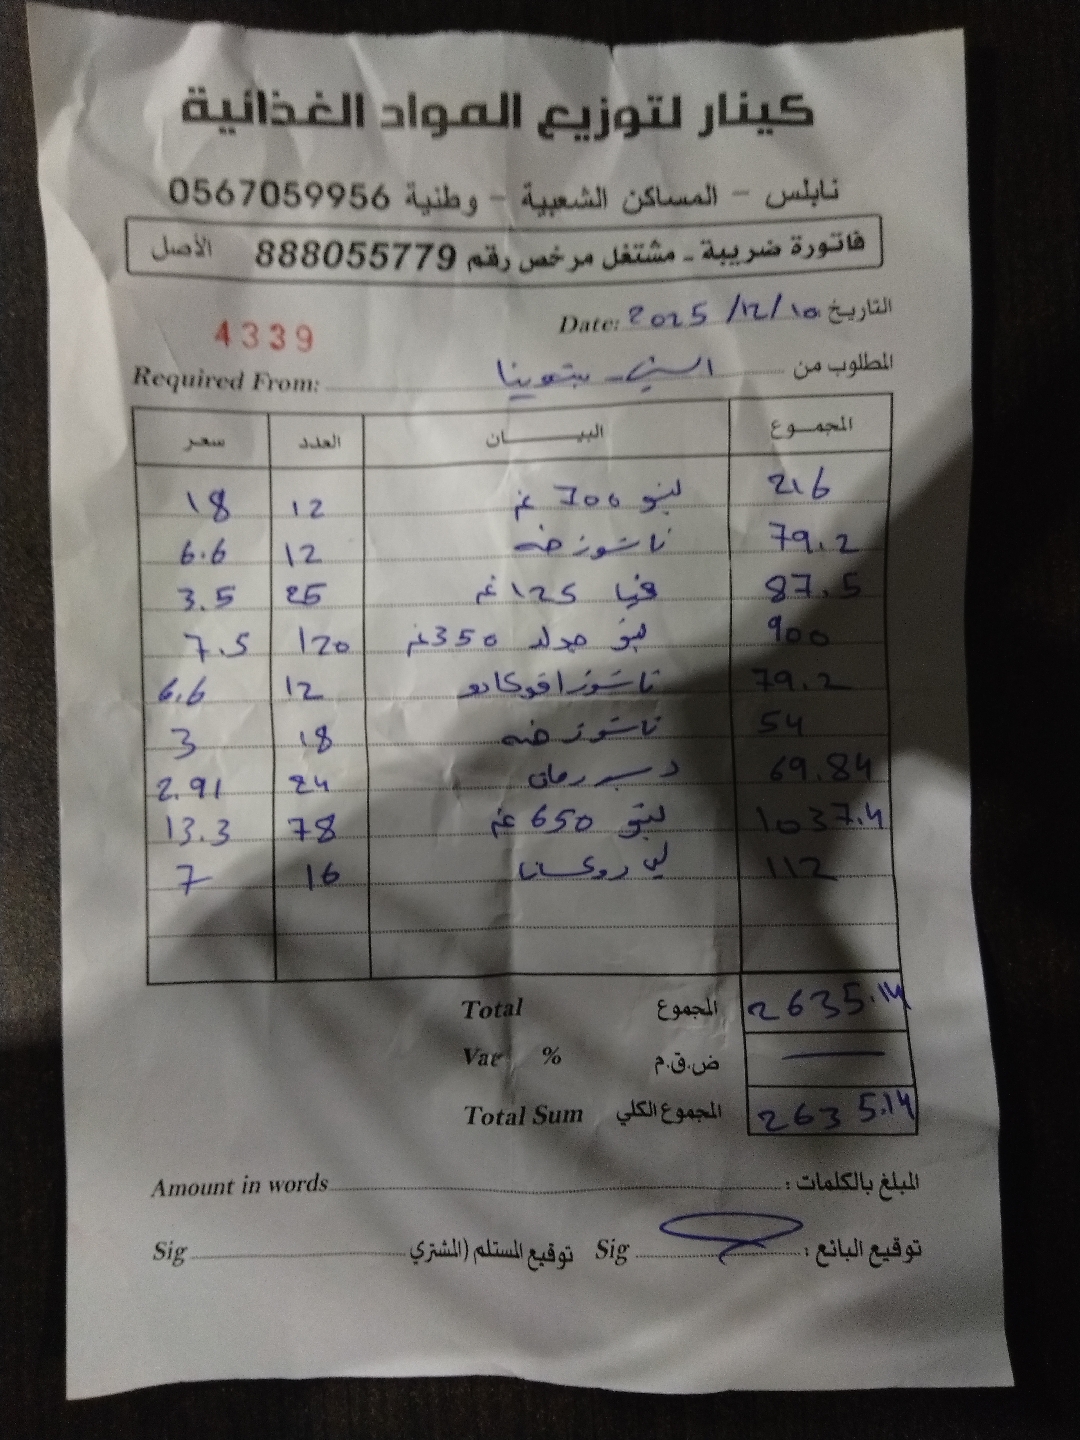 كينار لتوزيع المواد الغذائية
نابلس - المساكن الشعبية - وطنية 0567059956
فاتورة ضريبة - مشتغل مرخص رقم 888055779 الأصل
التاريخ 2025/12/10 Date:
4339
المطلوب من Required From:
المجموع البيان العدد سعر
216 700 غم 12 18
79.2 12 6.6
87.5 125 غم 25 3.5
900 350 غم 120 7.5
79.2 افوكادو 12 6.6
54 18 3
69.84 دبس رمان 24 2.91
1037.4 650 غم 78 13.3
112 16 7
Total المجموع 2635.14
Vat % ض.ق.م
Total Sum المجموع الكلي 2635.14
المبلغ بالكلمات : Amount in words
توقيع البائع : Sig توقيع المستلم (المشتري Sig